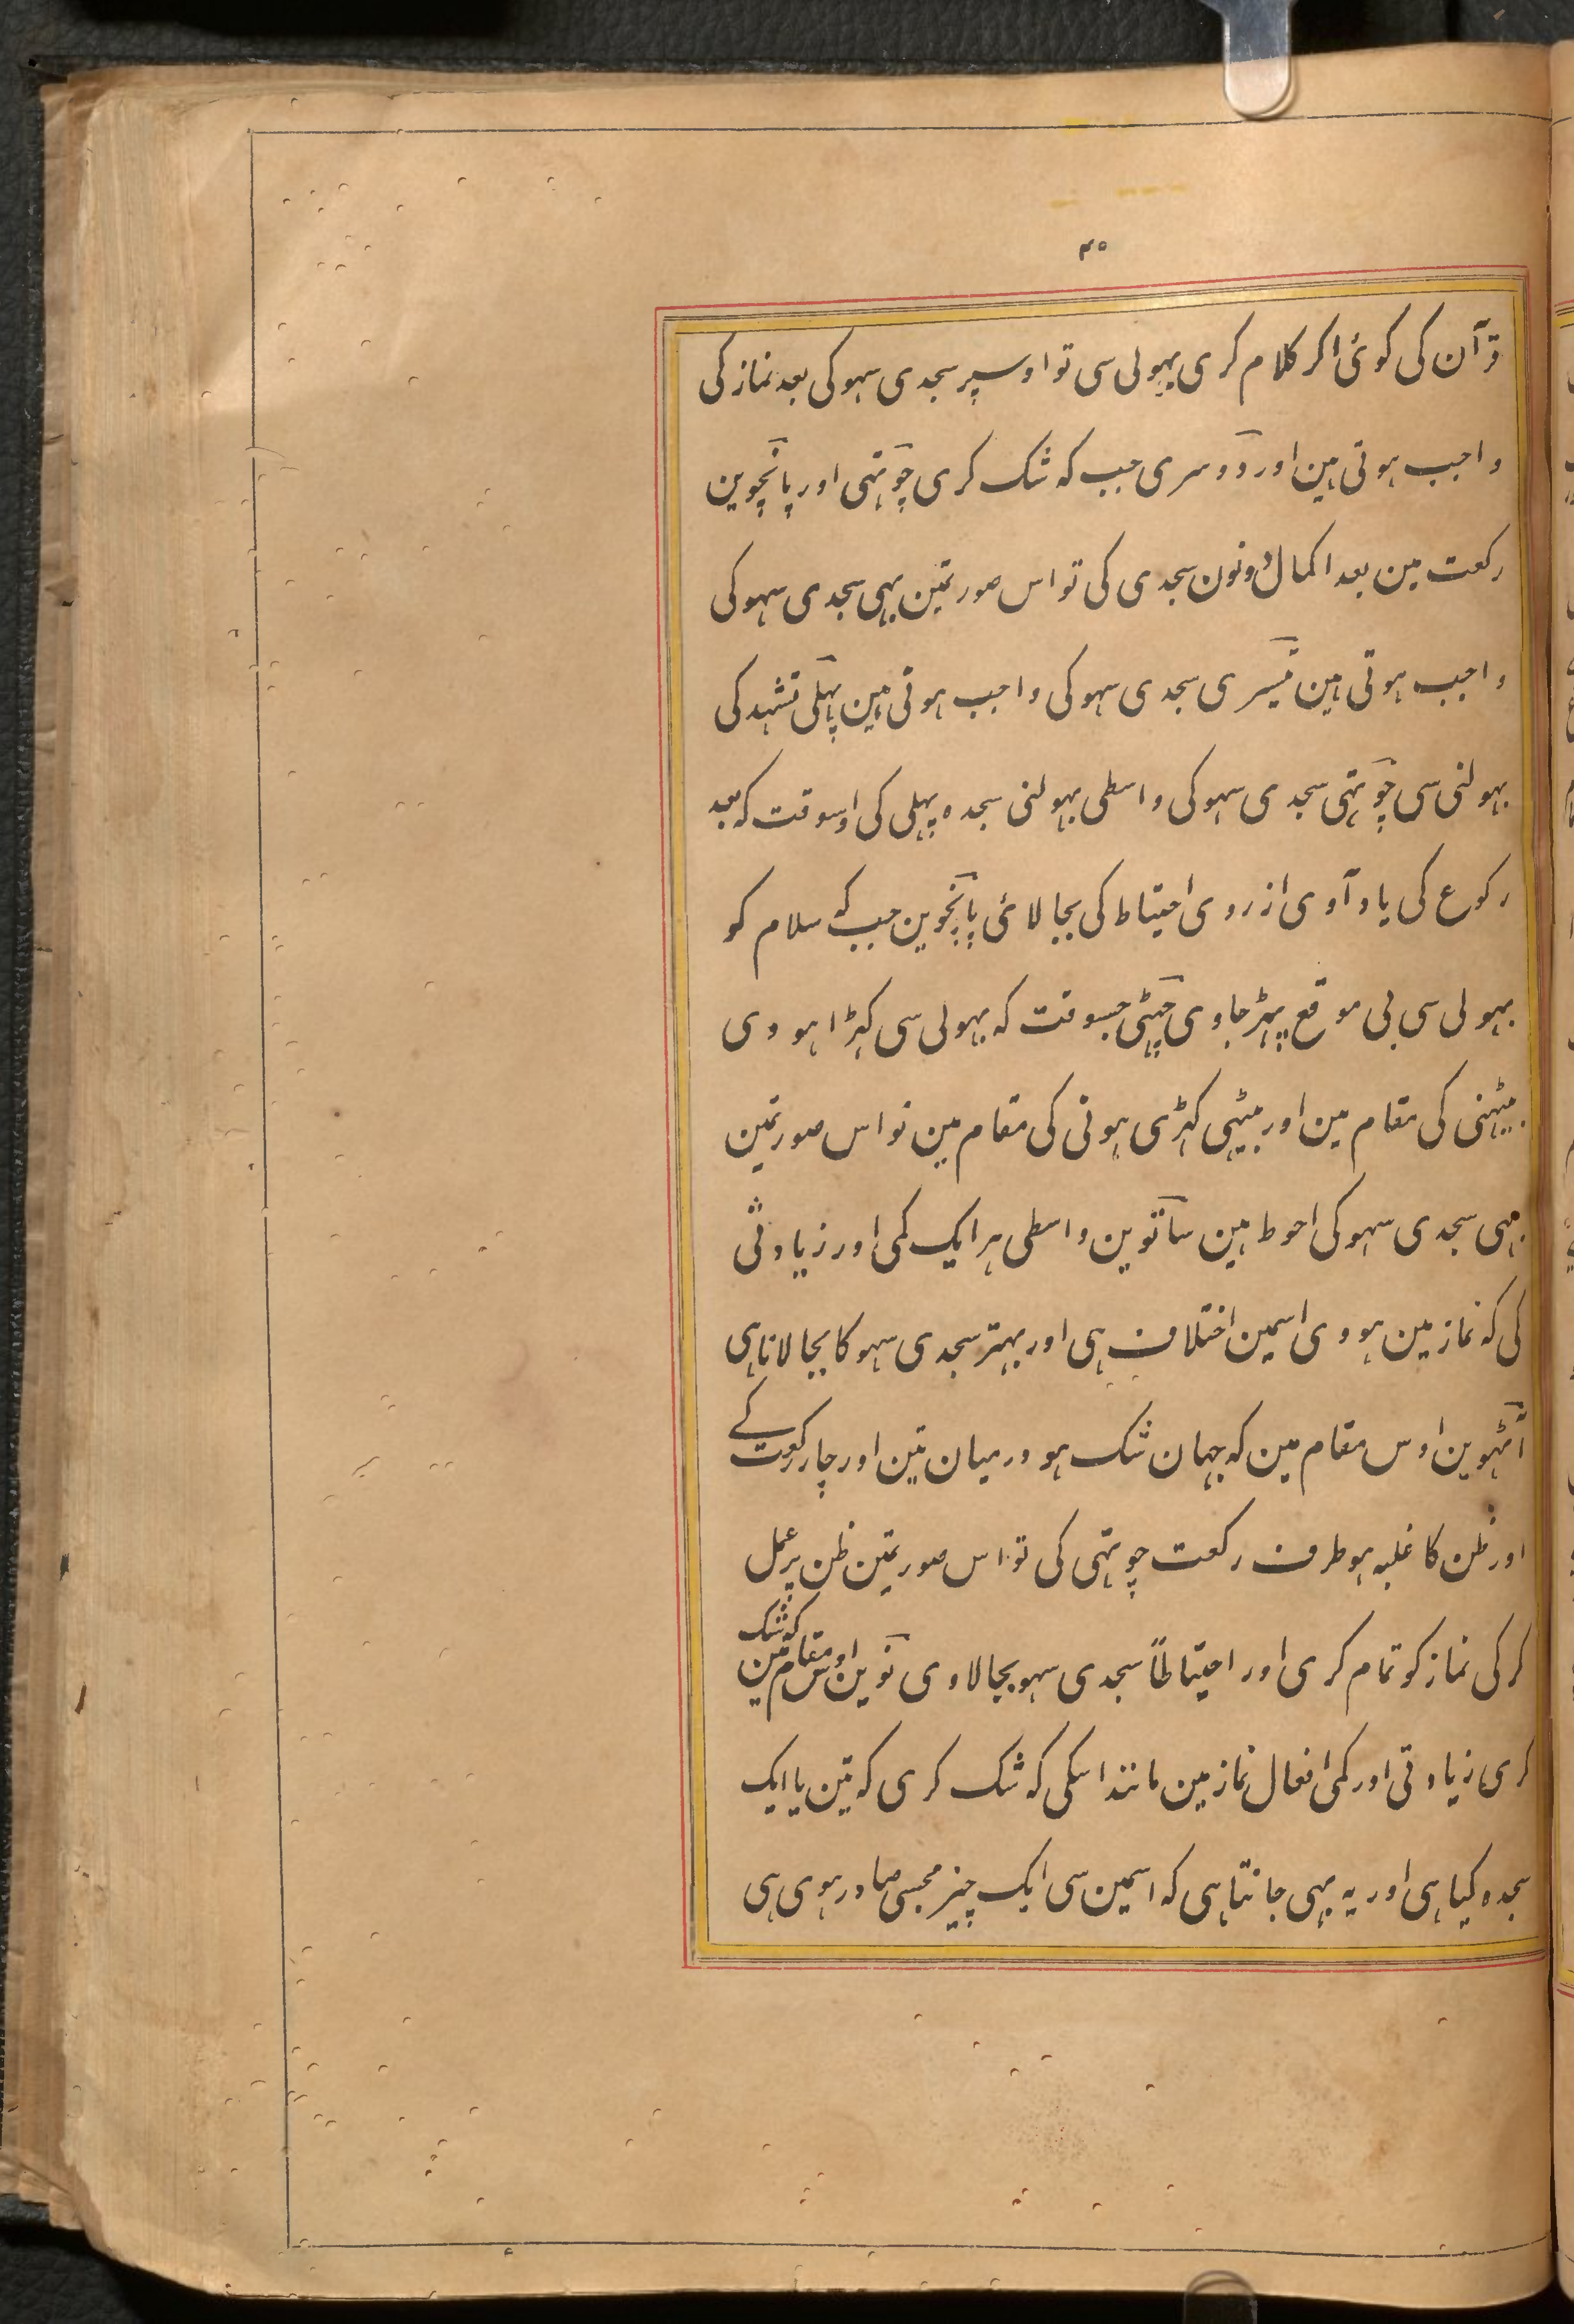 ۴۵
قرآن کی کوئی اکر کلام کری بہولی سی تو اوسپر سجدی سہو کی بعد نماز کی
واجب ہوتی ہین اور دوسری جب کہ شک کری چوتہی اور پانچوین
رکعت مین بعد اکمال دونون سجدی کی تو اس صورتمین بہی سجدی سہو کی
واجب ہوتی ہین تیسری سجدی سہو کی واجب ہوتی ہین پہلی تشہد کی
بہولنی سی چوتہی سجدی سہو کی واسطی بہولنی سجدہ پہلی کی اوسوقت کہ بعد
رکوع کی یاد آوی از روی احتیاط کی بجا لائی پانچوین جب کہ سلام کو
بہولی سی بی موقع پہڑ جاوی چہٹی جسوقت کہ بہولی سی کہڑا ہو وی
بیٹہنی کی مقام مین اور بیٹہی کہڑی ہونی کی مقام مین تو اس صورتمین
بہی سجدی سہو کی احوط ہین ساتوین واسطی ہر ایک کمی اور زیادتی
کی کہ نماز مین ہو وی اسمین اختلاف ہی اور بہتر سجدی سہو کا بجا لانا ہی
آٹہوین اوس مقام مین کہ جہان شک ہو درمیان تین اور چار رکعت کے
اور ظن کا غلبہ ہو طرف رکعت چوتہی کی تو اس صورتمین ظن پر عمل
کر کی نماز کو تمام کری اور احتیاطاً سجدی سہو بجا لاوی نوین اوس مقام مین کہ شک
کری زیادتی اور کمی افعال نماز مین مانند اسکی کہ شک کری کہ تین یا ایک
سجدہ کیا ہی اور یہ بہی جانتا ہی کہ اسمین سی ایک چیز مجسی صادر ہوی ہی